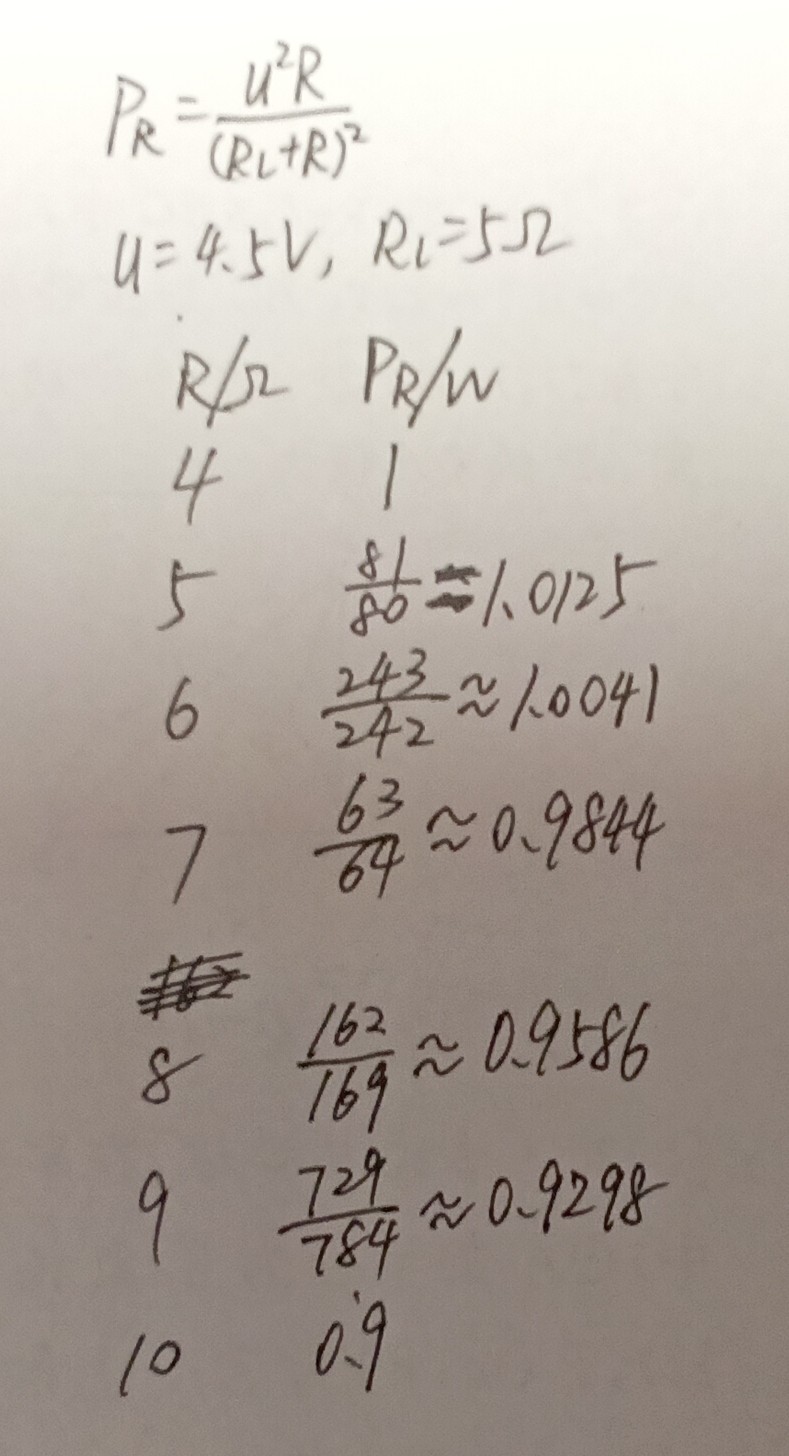 P_R = U²R / (R_L+R)²
U = 4.5V, R_L = 5Ω
R/Ω P_R/W
4 1
5 81/80 = 1.0125
6 243/242 ≈ 1.0041
7 63/64 ≈ 0.9844
8 162/169 ≈ 0.9586
9 729/784 ≈ 0.9298
10 0.9